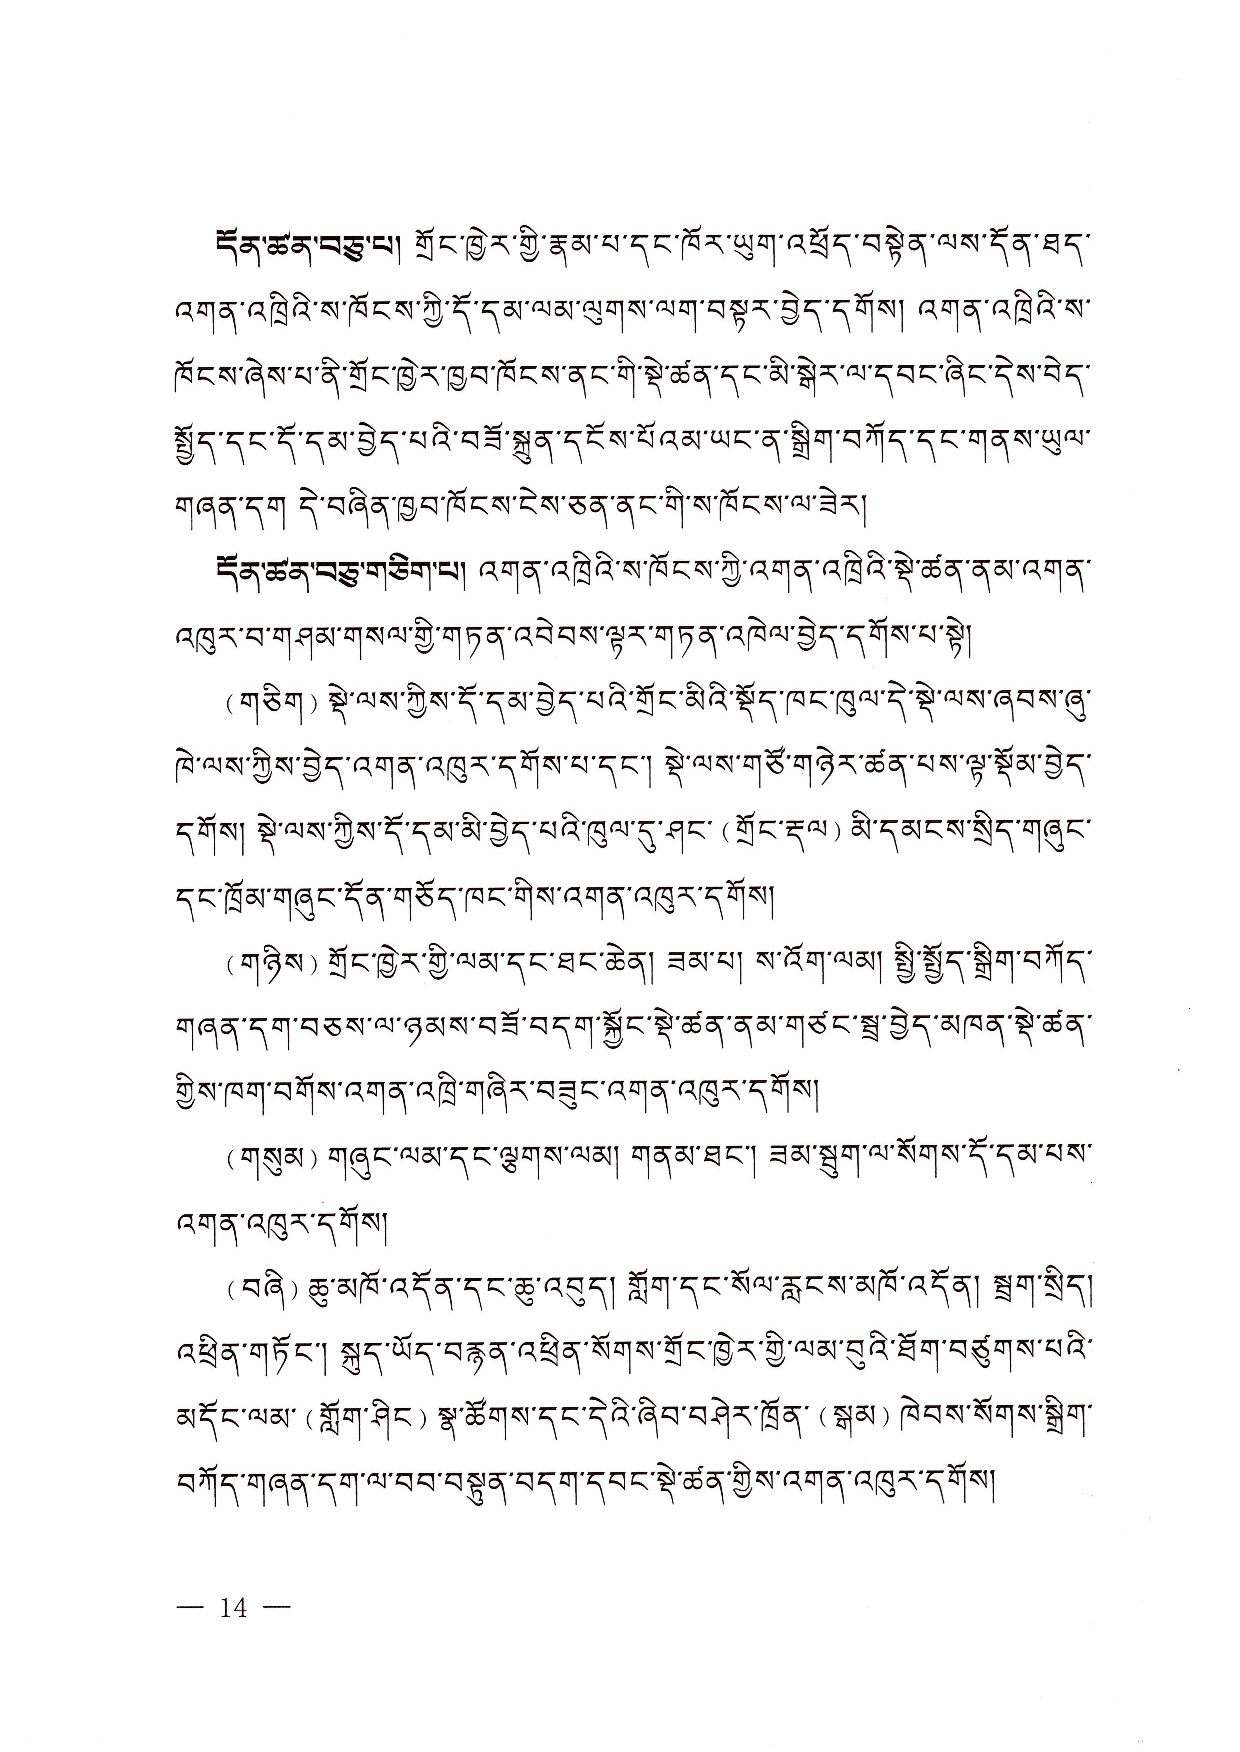 དོན་ཚན་བཅུ་པ། གྲོང་ཁྱེར་གྱི་རྣམ་པ་དང་ཁོར་ཡུག་འཕྲོད་བསྟེན་ལས་དོན་ཐད་
འགན་འཁྲིའི་ས་ཁོངས་ཀྱི་དོ་དམ་ལམ་ལུགས་ལག་བསྟར་བྱེད་དགོས། འགན་འཁྲིའི་ས་
ཁོངས་ཞེས་པ་ནི་གྲོང་ཁྱེར་ཁྱབ་ཁོངས་ནང་གི་སྡེ་ཚན་དང་མི་སྒེར་ལ་དབང་ཞིང་དེས་བེད་
སྤྱོད་དང་དོ་དམ་བྱེད་པའི་བཟོ་སྐྲུན་དངོས་པོའམ་ཡང་ན་སྒྲིག་བཀོད་དང་གནས་ཡུལ་
གཞན་དག དེ་བཞིན་ཁྱབ་ཁོངས་ངེས་ཅན་ནང་གི་ས་ཁོངས་ལ་ཟེར།
དོན་ཚན་བཅུ་གཅིག་པ། འགན་འཁྲིའི་ས་ཁོངས་ཀྱི་འགན་འཁྲིའི་སྡེ་ཚན་ནམ་འགན་
འཁུར་བ་གཤམ་གསལ་གྱི་གཏན་འབེབས་ལྟར་གཏན་འཁེལ་བྱེད་དགོས་པ་སྟེ།
(གཅིག) སྡེ་ལས་ཀྱིས་དོ་དམ་བྱེད་པའི་གྲོང་མིའི་སྡོད་ཁང་ཁུལ་དེ་སྡེ་ལས་ཞབས་ཞུ་
ཁེ་ལས་ཀྱིས་བྱེད་འགན་འཁུར་དགོས་པ་དང་། སྡེ་ལས་གཙོ་གཉེར་ཚན་པས་ལྟ་སྡོམ་བྱེད་
དགོས། སྡེ་ལས་ཀྱིས་དོ་དམ་མི་བྱེད་པའི་ཁུལ་དུ་ཤང་(གྲོང་རྡལ)མི་དམངས་སྲིད་གཞུང་
དང་ཁྲོམ་གཞུང་དོན་གཅོད་ཁང་གིས་འགན་འཁུར་དགོས།
(གཉིས) གྲོང་ཁྱེར་གྱི་ལམ་དང་ཐང་ཆེན། ཟམ་པ། ས་འོག་ལམ། སྤྱི་སྤྱོད་སྒྲིག་བཀོད་
གཞན་དག་བཅས་ལ་ཉམས་བཟོ་བདག་སྐྱོང་སྡེ་ཚན་ནམ་གཙང་སྦྲ་བྱེད་མཁན་སྡེ་ཚན་
གྱིས་ཁག་བགོས་འགན་འཁྲི་གཞིར་བཟུང་འགན་འཁུར་དགོས།
(གསུམ) གཞུང་ལམ་དང་ལྕགས་ལམ། གནམ་ཐང་། ཟམ་སྦྲུག་ལ་སོགས་དོ་དམ་པས་
འགན་འཁུར་དགོས།
(བཞི) ཆུ་མཁོ་འདོན་དང་ཆུ་འབུད། གློག་དང་སོལ་རླངས་མཁོ་འདོན། སྦྲག་སྲིད།
འཕྲིན་གཏོང་། སྐུད་ཡོད་བརྙན་འཕྲིན་སོགས་གྲོང་ཁྱེར་གྱི་ལམ་བུའི་ཐོག་བཙུགས་པའི་
མདོང་ལམ་(གློག་ཤིང)སྣ་ཚོགས་དང་དེའི་ཞིབ་བཤེར་ཁྲོན་(སྒམ)ཁེབས་སོགས་སྒྲིག་
བཀོད་གཞན་དག་ལ་བབ་བསྟུན་བདག་དབང་སྡེ་ཚན་གྱིས་འགན་འཁུར་དགོས།
— 14 —